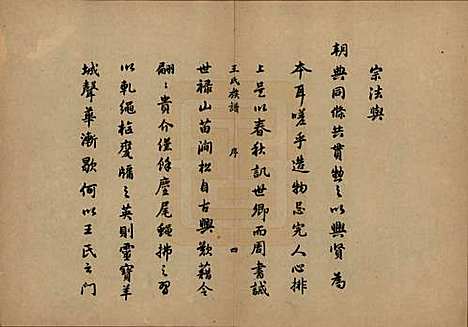 宗法與
朝典同條共貫勉之以興賢為
本耳嗟乎造物忌完人心排
上是以春秋譏世卿而周書誡
王氏族譜 序 四
世祿山苗澗松自古興歎藉令
翩翩貴介僅餘麈尾蠅拂之習
以軌繩榰度牖之英則靈寶羊
城聲華漸歇何以王氏之門